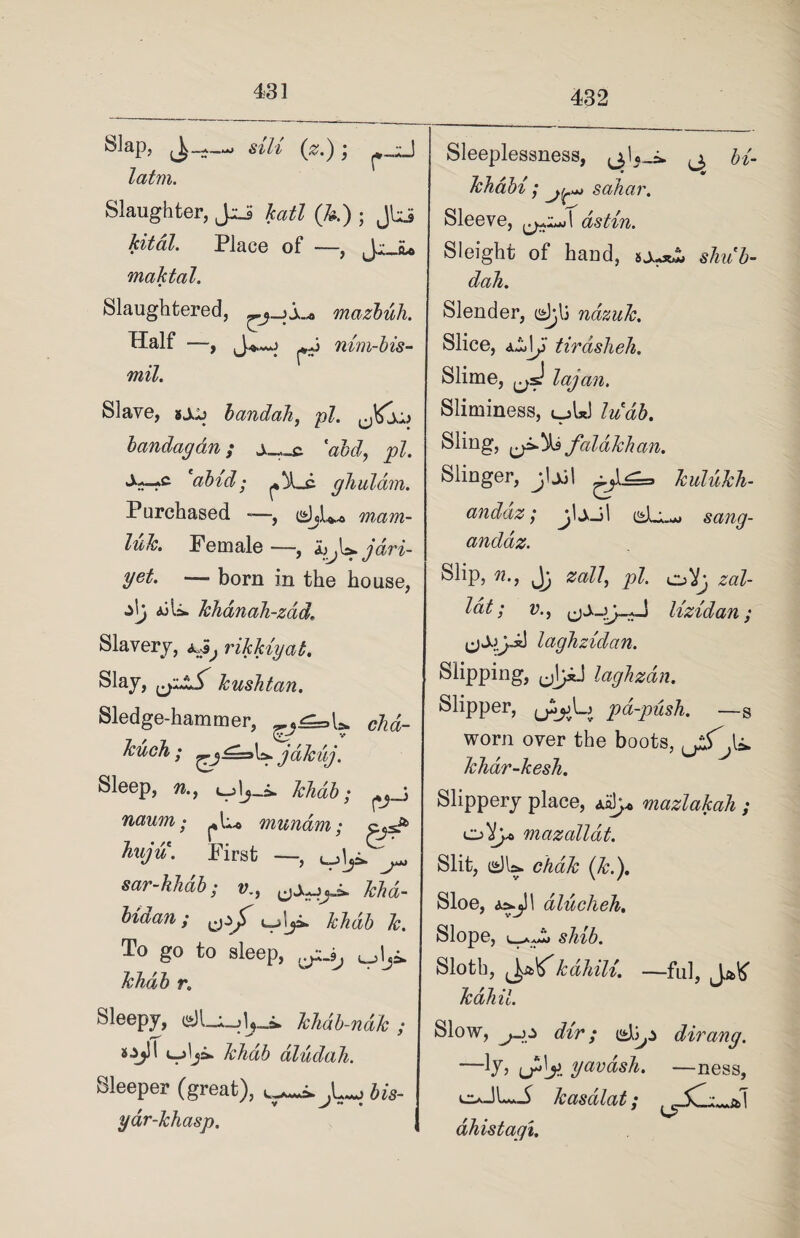 431
Slap, سیلی sílí (z.); لطم
latm.
Slaughter, قتل katl (k.); قتال
kitál. Place of —, مقتل
maktal.
Slaughtered, مذبوح mazbúh.
Half —, نیم بسمل ním-bis-
mil.
Slave, بنده bandah, pl. بندگان
bandagán; عبد 'abd, pl.
عبید 'abíd; غلام ghulám.
Purchased —, مملوک mam-
lúk. Female —, جاریة jári-
yet. — born in the house,
خانه زاد khánah-zád.
Slavery, رقیة rikkíyat.
Slay, کشتن kushtan.
Sledge-hammer, چاکوچ chá-
kúch; جاکوج jákúj.
Sleep, n., خواب kháb; نوم
naum; منام munám; هجوع
hujú'. First —, سر خواب
sar-kháb; v., خوابیدن khá-
bídan; خواب کردن kháb k.
To go to sleep, خواب رفتن
kháb r.
Sleepy, خوابناک kháb-nák;
خواب آلوده kháb áludah.
Sleeper (great), بسیار خسپ bis-
yár-khasp.
432
Sleeplessness, بی خوابی bí-
khábí; سهر sahar.
Sleeve, آستین ástín.
Sleight of hand, شعبده shu'b-
dah.
Slender, نازک názuk.
Slice, تراشه tirásheh.
Slime, لجن lajan.
Sliminess, لعاب lu'áb.
Sling, فلاخن falákhan.
Slinger, کلوخ انداز kulúkh-
andáz; سنگ انداز sang-
andáz.
Slip, n., زل zall, pl. زلات zal-
lát; v., لیزیدن lízídan;
لغزیدن laghzídan.
Slipping, لغزان laghzán.
Slipper, پاپوش pá-púsh. —s
worn over the boots, خارکش
khár-kesh.
Slippery place, مزلقه mazlakah;
مزلات mazallát.
Slit, چاک chák (k.).
Sloe, آلوچه álúcheh.
Slope, شیب shíb.
Sloth, کاهلی káhilí. —ful, کاهل
káhil.
Slow, دیر dír; درنگ dirang.
—ly, یواش yavásh. —ness,
کسالت kasálat; آهستگی
áhistagí.